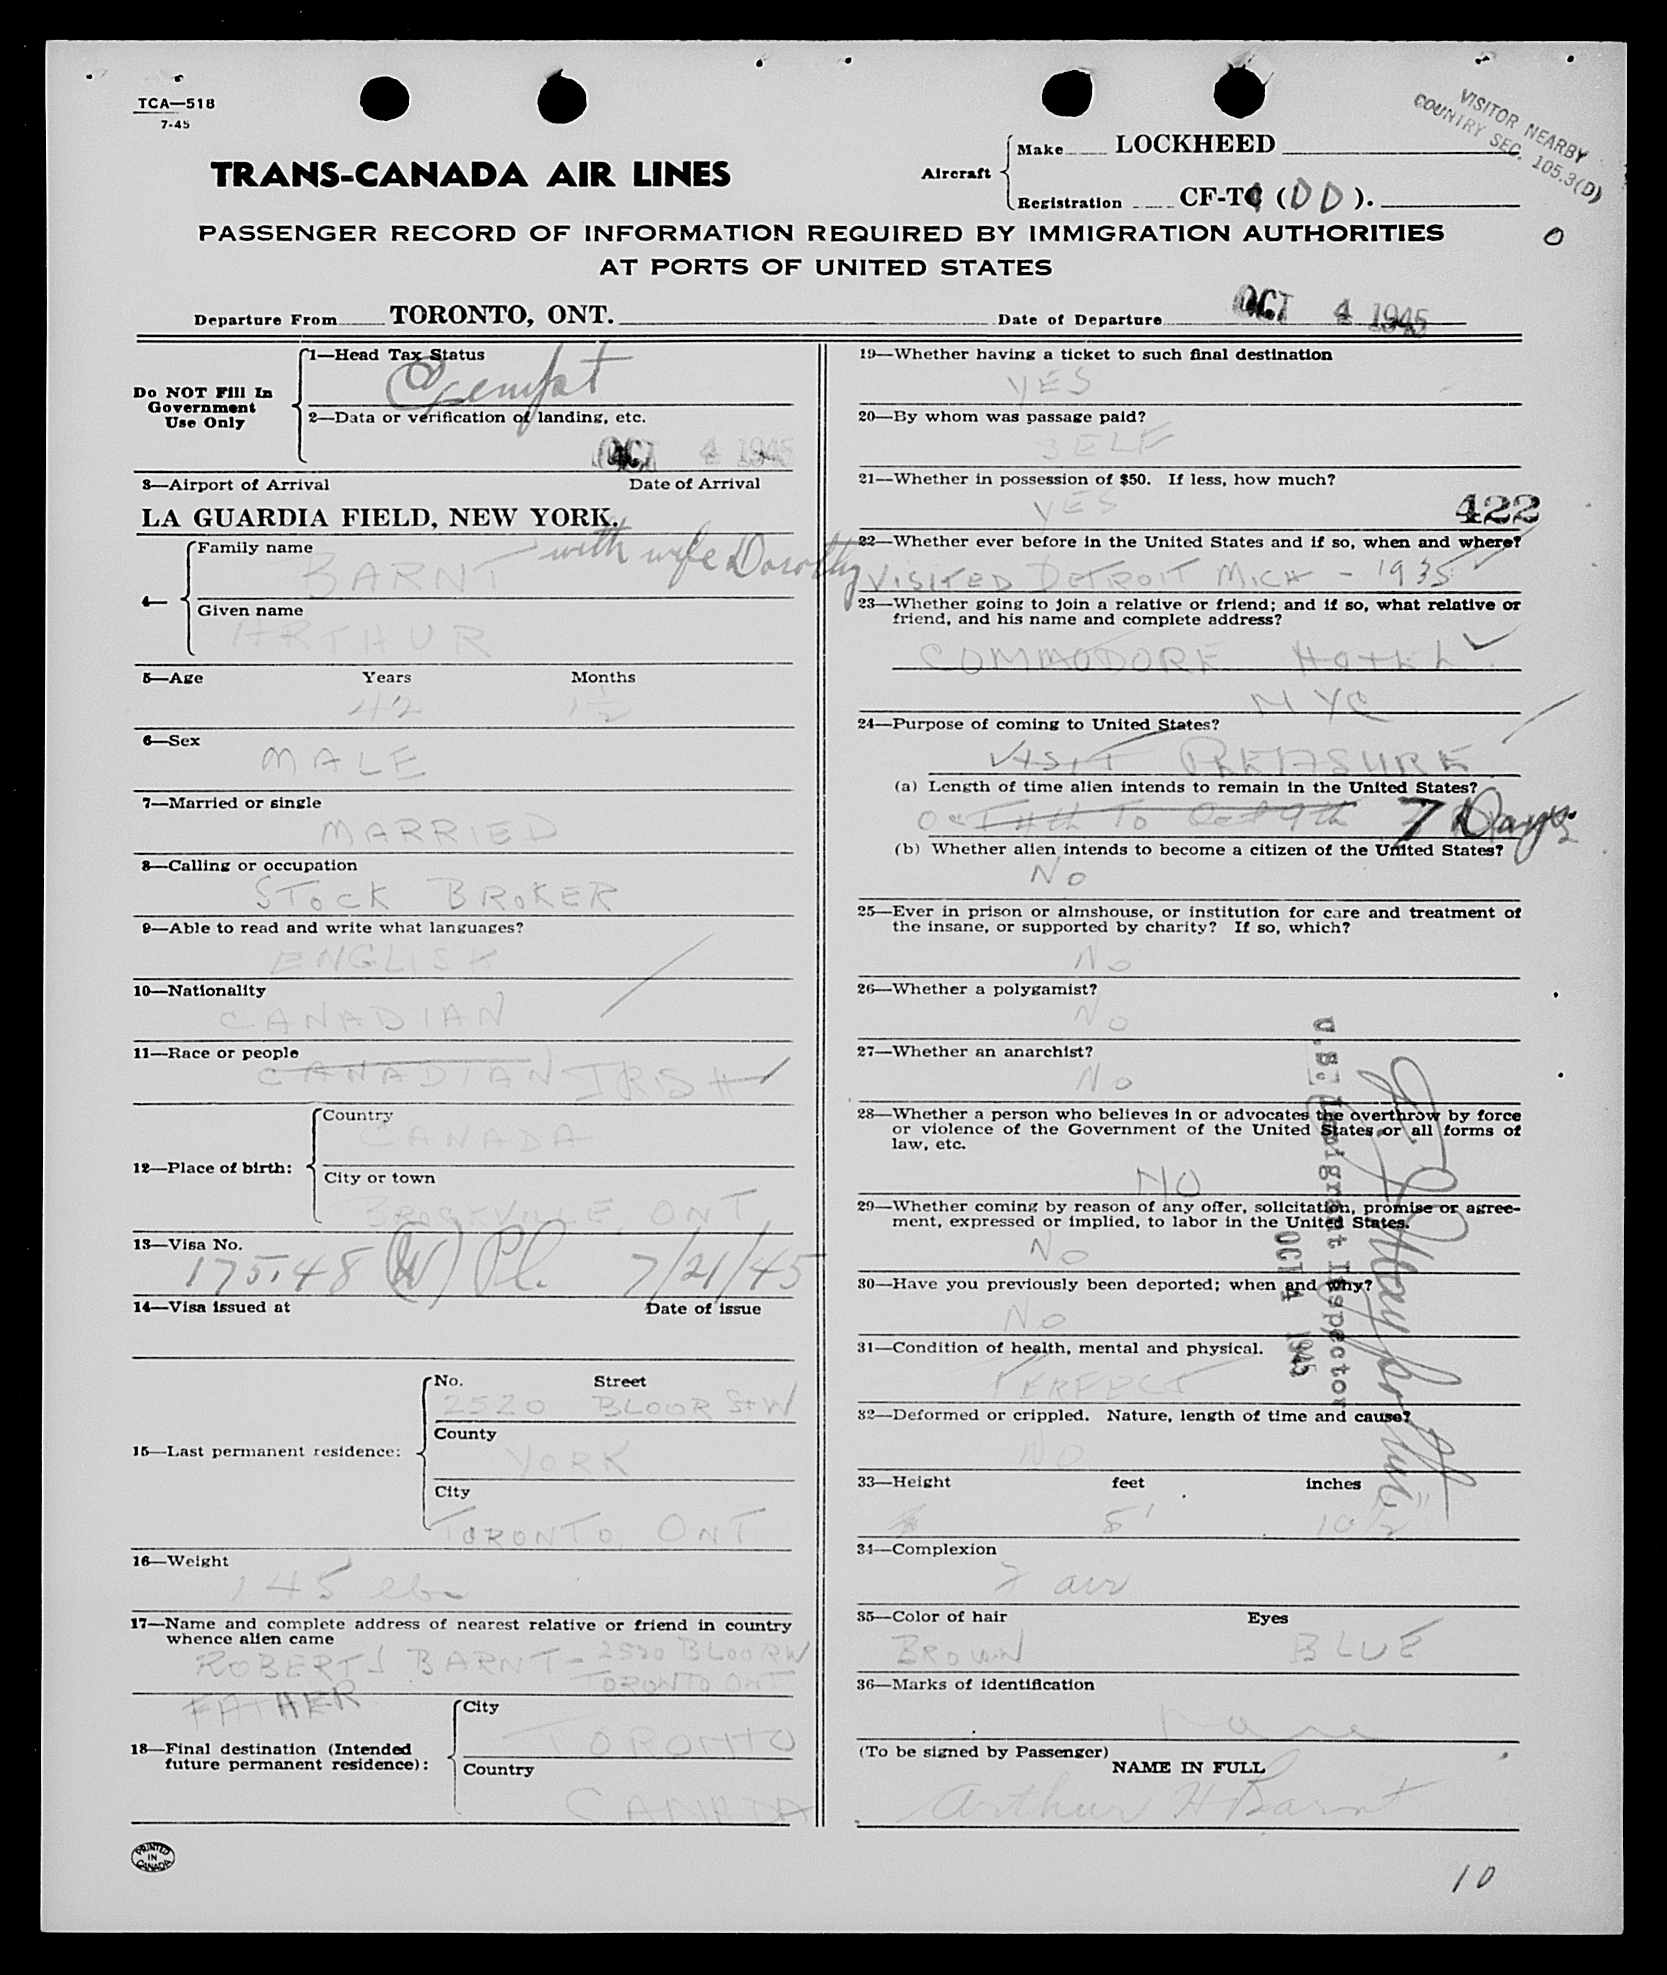 TCA—518
7-45
VISITOR NEARBY
COUNTRY SEC. 105.3(D)
TRANS-CANADA AIR LINES
Aircraft
Make LOCKHEED
Registration CF-TC (DD).
PASSENGER RECORD OF INFORMATION REQUIRED BY IMMIGRATION AUTHORITIES
AT PORTS OF UNITED STATES
Departure From TORONTO, ONT.
Date of Departure OCT 4 1945
Do NOT Fill In
Government
Use Only
1—Head Tax Status
Exempt
2—Data or verification of landing, etc.
OCT 4 1945
3—Airport of Arrival Date of Arrival
LA GUARDIA FIELD, NEW YORK.
4—
Family name
BARNT with wife Dorothy
Given name
ARTHUR
5—Age Years Months
42 1½
6—Sex
MALE
7—Married or single
MARRIED
8—Calling or occupation
STOCK BROKER
9—Able to read and write what languages?
ENGLISH
10—Nationality
CANADIAN
11—Race or people
CANADIAN IRISH
12—Place of birth:
Country
CANADA
City or town
BROCKVILLE ONT
13—Visa No.
175.48 (W) Pl. 7/21/45
14—Visa issued at Date of issue
15—Last permanent residence:
No. Street
2520 BLOOR St W
County
YORK
City
TORONTO ONT
16—Weight
145 lbs
17—Name and complete address of nearest relative or friend in country
whence alien came
ROBERT J BARNT - 2520 BLOOR W
TORONTO ONT
FATHER
18—Final destination (Intended
future permanent residence):
City
TORONTO
Country
CANADA
PRINTED
IN
CANADA
19—Whether having a ticket to such final destination
YES
20—By whom was passage paid?
SELF
21—Whether in possession of $50. If less, how much?
YES
422
22—Whether ever before in the United States and if so, when and where?
VISITED DETROIT MICH - 1935
23—Whether going to join a relative or friend; and if so, what relative or
friend, and his name and complete address?
COMMODORE HOTEL
NYC
24—Purpose of coming to United States?
VISIT PLEASURE
(a) Length of time alien intends to remain in the United States?
Oct 4th To Oct 9th 7 Days
(b) Whether alien intends to become a citizen of the United States?
No
25—Ever in prison or almshouse, or institution for care and treatment of
the insane, or supported by charity? If so, which?
No
26—Whether a polygamist?
No
27—Whether an anarchist?
No
28—Whether a person who believes in or advocates the overthrow by force
or violence of the Government of the United States or all forms of
law, etc.
NO
29—Whether coming by reason of any offer, solicitation, promise or agree-
ment, expressed or implied, to labor in the United States.
No
30—Have you previously been deported; when and why?
No
31—Condition of health, mental and physical.
PERFECT
32—Deformed or crippled. Nature, length of time and cause?
No
33—Height feet inches
5' 10½"
34—Complexion
Fair
35—Color of hair Eyes
BROWN BLUE
36—Marks of identification
none
(To be signed by Passenger)
NAME IN FULL
Arthur H Barnt
U.S. Immigrant Inspector
OCT 4 1945
10